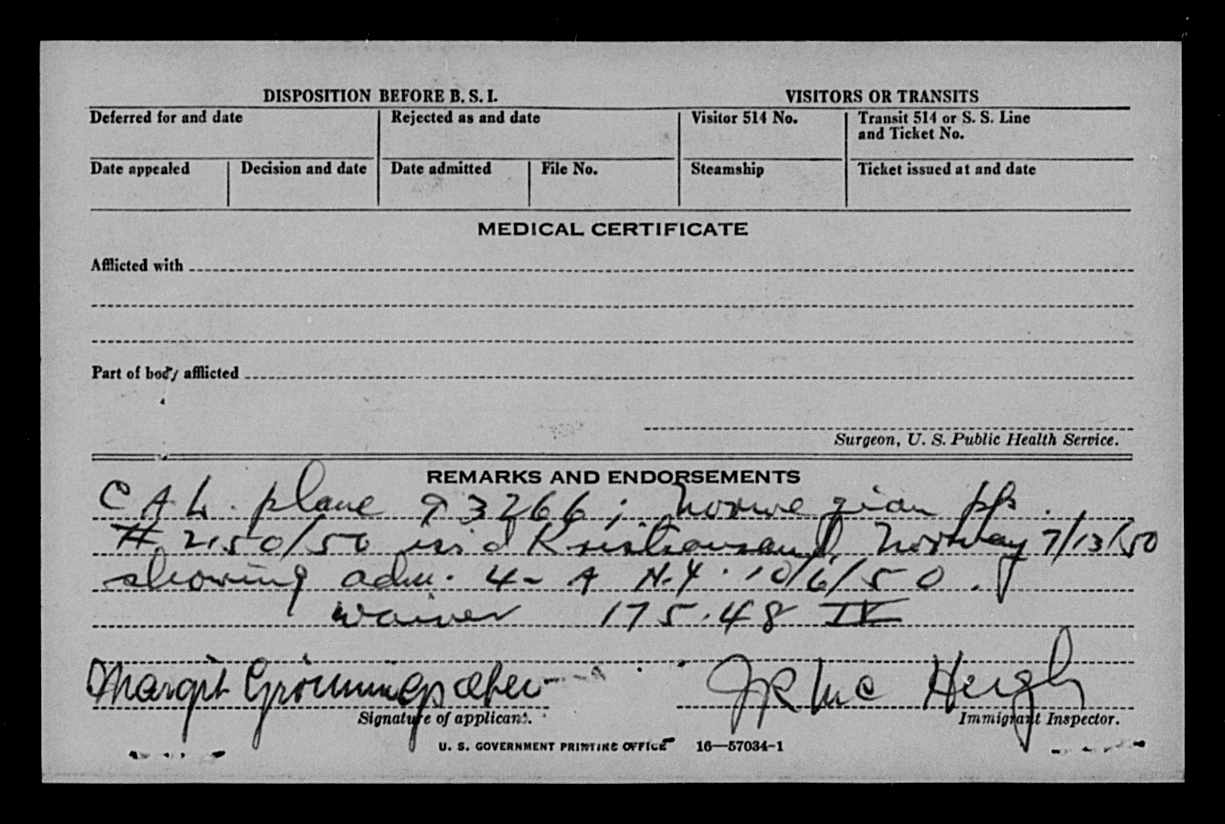 DISPOSITION BEFORE B. S. I.
VISITORS OR TRANSITS
Deferred for and date
Rejected as and date
Visitor 514 No.
Transit 514 or S. S. Line
and Ticket No.
Date appealed
Decision and date
Date admitted
File No.
Steamship
Ticket issued at and date
MEDICAL CERTIFICATE
Afflicted with
Part of body afflicted
Surgeon, U. S. Public Health Service.
REMARKS AND ENDORSEMENTS
C A L. plane 93266; Norwegian pp.
# 2150/50 iss'd Kristiansand, Norway 7/13/50
showing adm. 4-A N.Y. 10/6/50.
waiver 175.48 IV
Margit
Signature of applicant.
Immigrant Inspector.
U. S. GOVERNMENT PRINTING OFFICE 16—57034-1